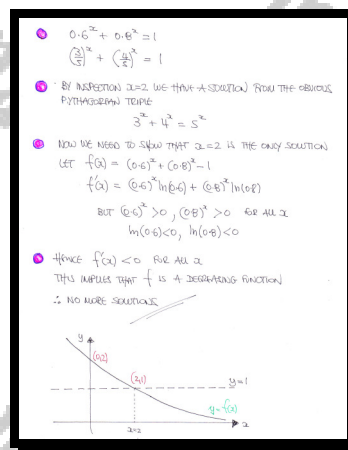 0.6^x + 0.8^x = 1
(3/5)^x + (4/5)^x = 1
BY INSPECTION x=2 WE HAVE A SOLUTION FROM THE OBVIOUS
PYTHAGOREAN TRIPLE
3^x + 4^x = 5^x
NOW WE NEED TO SHOW THAT x=2 IS THE ONLY SOLUTION
LET f(x) = (0.6)^x + (0.8)^x - 1
f'(x) = (0.6)^x ln(0.6) + (0.8)^x ln(0.8)
BUT (0.6)^x > 0, (0.8)^x > 0 FOR ALL x
ln(0.6)<0, ln(0.8)<0
HENCE f'(x) < 0 FOR ALL x
THIS IMPLIES THAT f IS A DECREASING FUNCTION
∴ NO MORE SOLUTIONS
y
(0,2)
(2,1)
y=1
y=f(x)
x
x=2